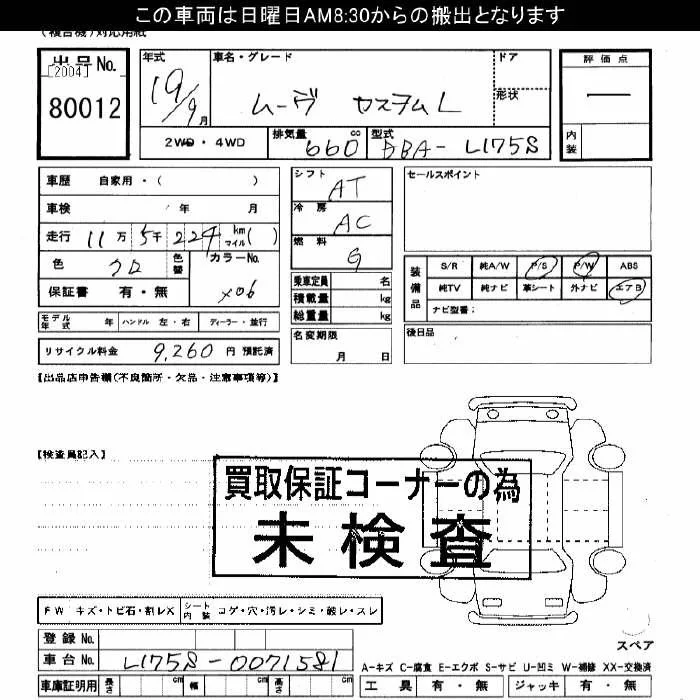 この車両は日曜日AM8:30からの搬出となります
(複合機)対応用紙
出品No.
[2004]
80012
年式
19/9月
車名・グレード
ムーヴ カスタムL
ドア
形状
評価点
―
内装
2WD・4WD
排気量
660
cc
型式
BBA-L175S
車歴 自家用・( )
車検 年 月
走行 11万5千224 km マイル( )
色 クロ 色替
カラーNo.
X06
保証書 有・無
シフト
AT
冷房
AC
燃料
G
乗車定員 名
積載量 kg
総重量 kg
セールスポイント
装備品
S/R 純A/W P/S P/W ABS
純TV 純ナビ 革シート 外ナビ エアB
ナビ型番:
モデル年式 年 ハンドル 左・右 ディーラー・並行
リサイクル料金 9,260 円 預託済
名変期限
月 日
後日品
【出品店申告欄(不良箇所・欠品・注意事項等)】
【検査員記入】
買取保証コーナーの為
未検査
FW キズ・トビ石・割レX
シート内装 コゲ・穴・汚レ・シミ・破レ・スレ
登録No.
車台No. L175S-0071581
車庫証明用 長さ cm 幅 cm 高さ cm
スペア
A-キズ C-腐食 E-エクボ S-サビ U-凹ミ W-補修 XX-交換済
工具 有・無 ジャッキ 有・無